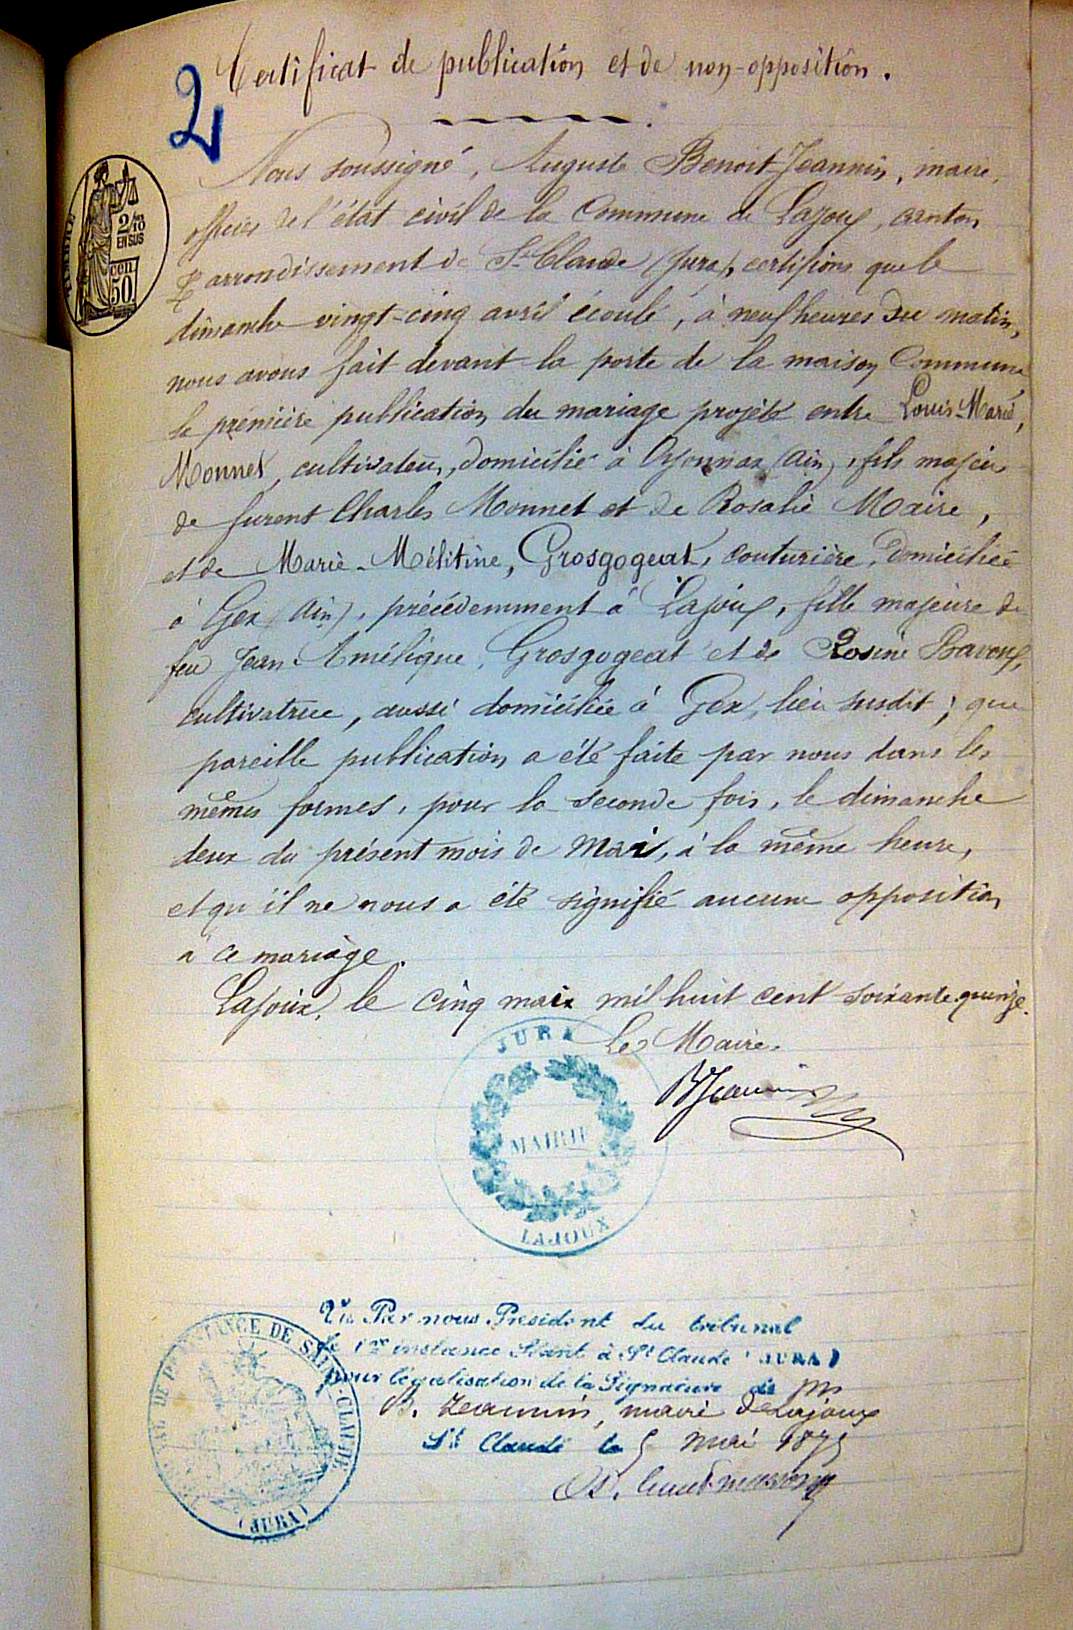 Certificat de publication et de non-opposition.
2
TIMBRE
2/10
EN SUS
50
Nous soussigné, Auguste Benoit-Jeannin, maire,
officier de l'état civil de la Commune de Lajoux, canton
& arrondissement de St Claude (Jura), certifions que le
dimanche vingt-cinq avril écoulé, à neuf heures du matin,
nous avons fait devant la porte de la maison Commune
la première publication du mariage projeté entre Louis-Marie,
Monnet, cultivateur, domicilié à Oyonnax (Ain), fils majeur
de furent Charles Monnet et de Rosalie Maire,
et de Marie-Mélitine, Grosgogeat, couturière, domiciliée
à Gex (Ain), précédemment à Lajoux, fille majeure de
feu Jean-Amélique, Grosgogeat et de Rosine Bavoux,
cultivatrice, aussi domiciliée à Gex, lieu susdit; que
pareille publication a été faite par nous dans les
mêmes formes, pour la seconde fois, le dimanche
deux du présent mois de Mai, à la même heure,
et qu'il ne nous a été signifié aucune opposition
à ce mariage.
Lajoux, le cinq mai mil huit cent soixante quinze.
Le Maire.
BJeannin
JURA
MAIRIE
LAJOUX
Vu Par nous Président du tribunal
de 1re instance Séant à St Claude (JURA)
pour légalisation de la Signature de M
B. Jeannin, maire de Lajoux
St Claude le 5 mai 1875
INSTANCE DE SAINT-CLAUDE
(JURA)